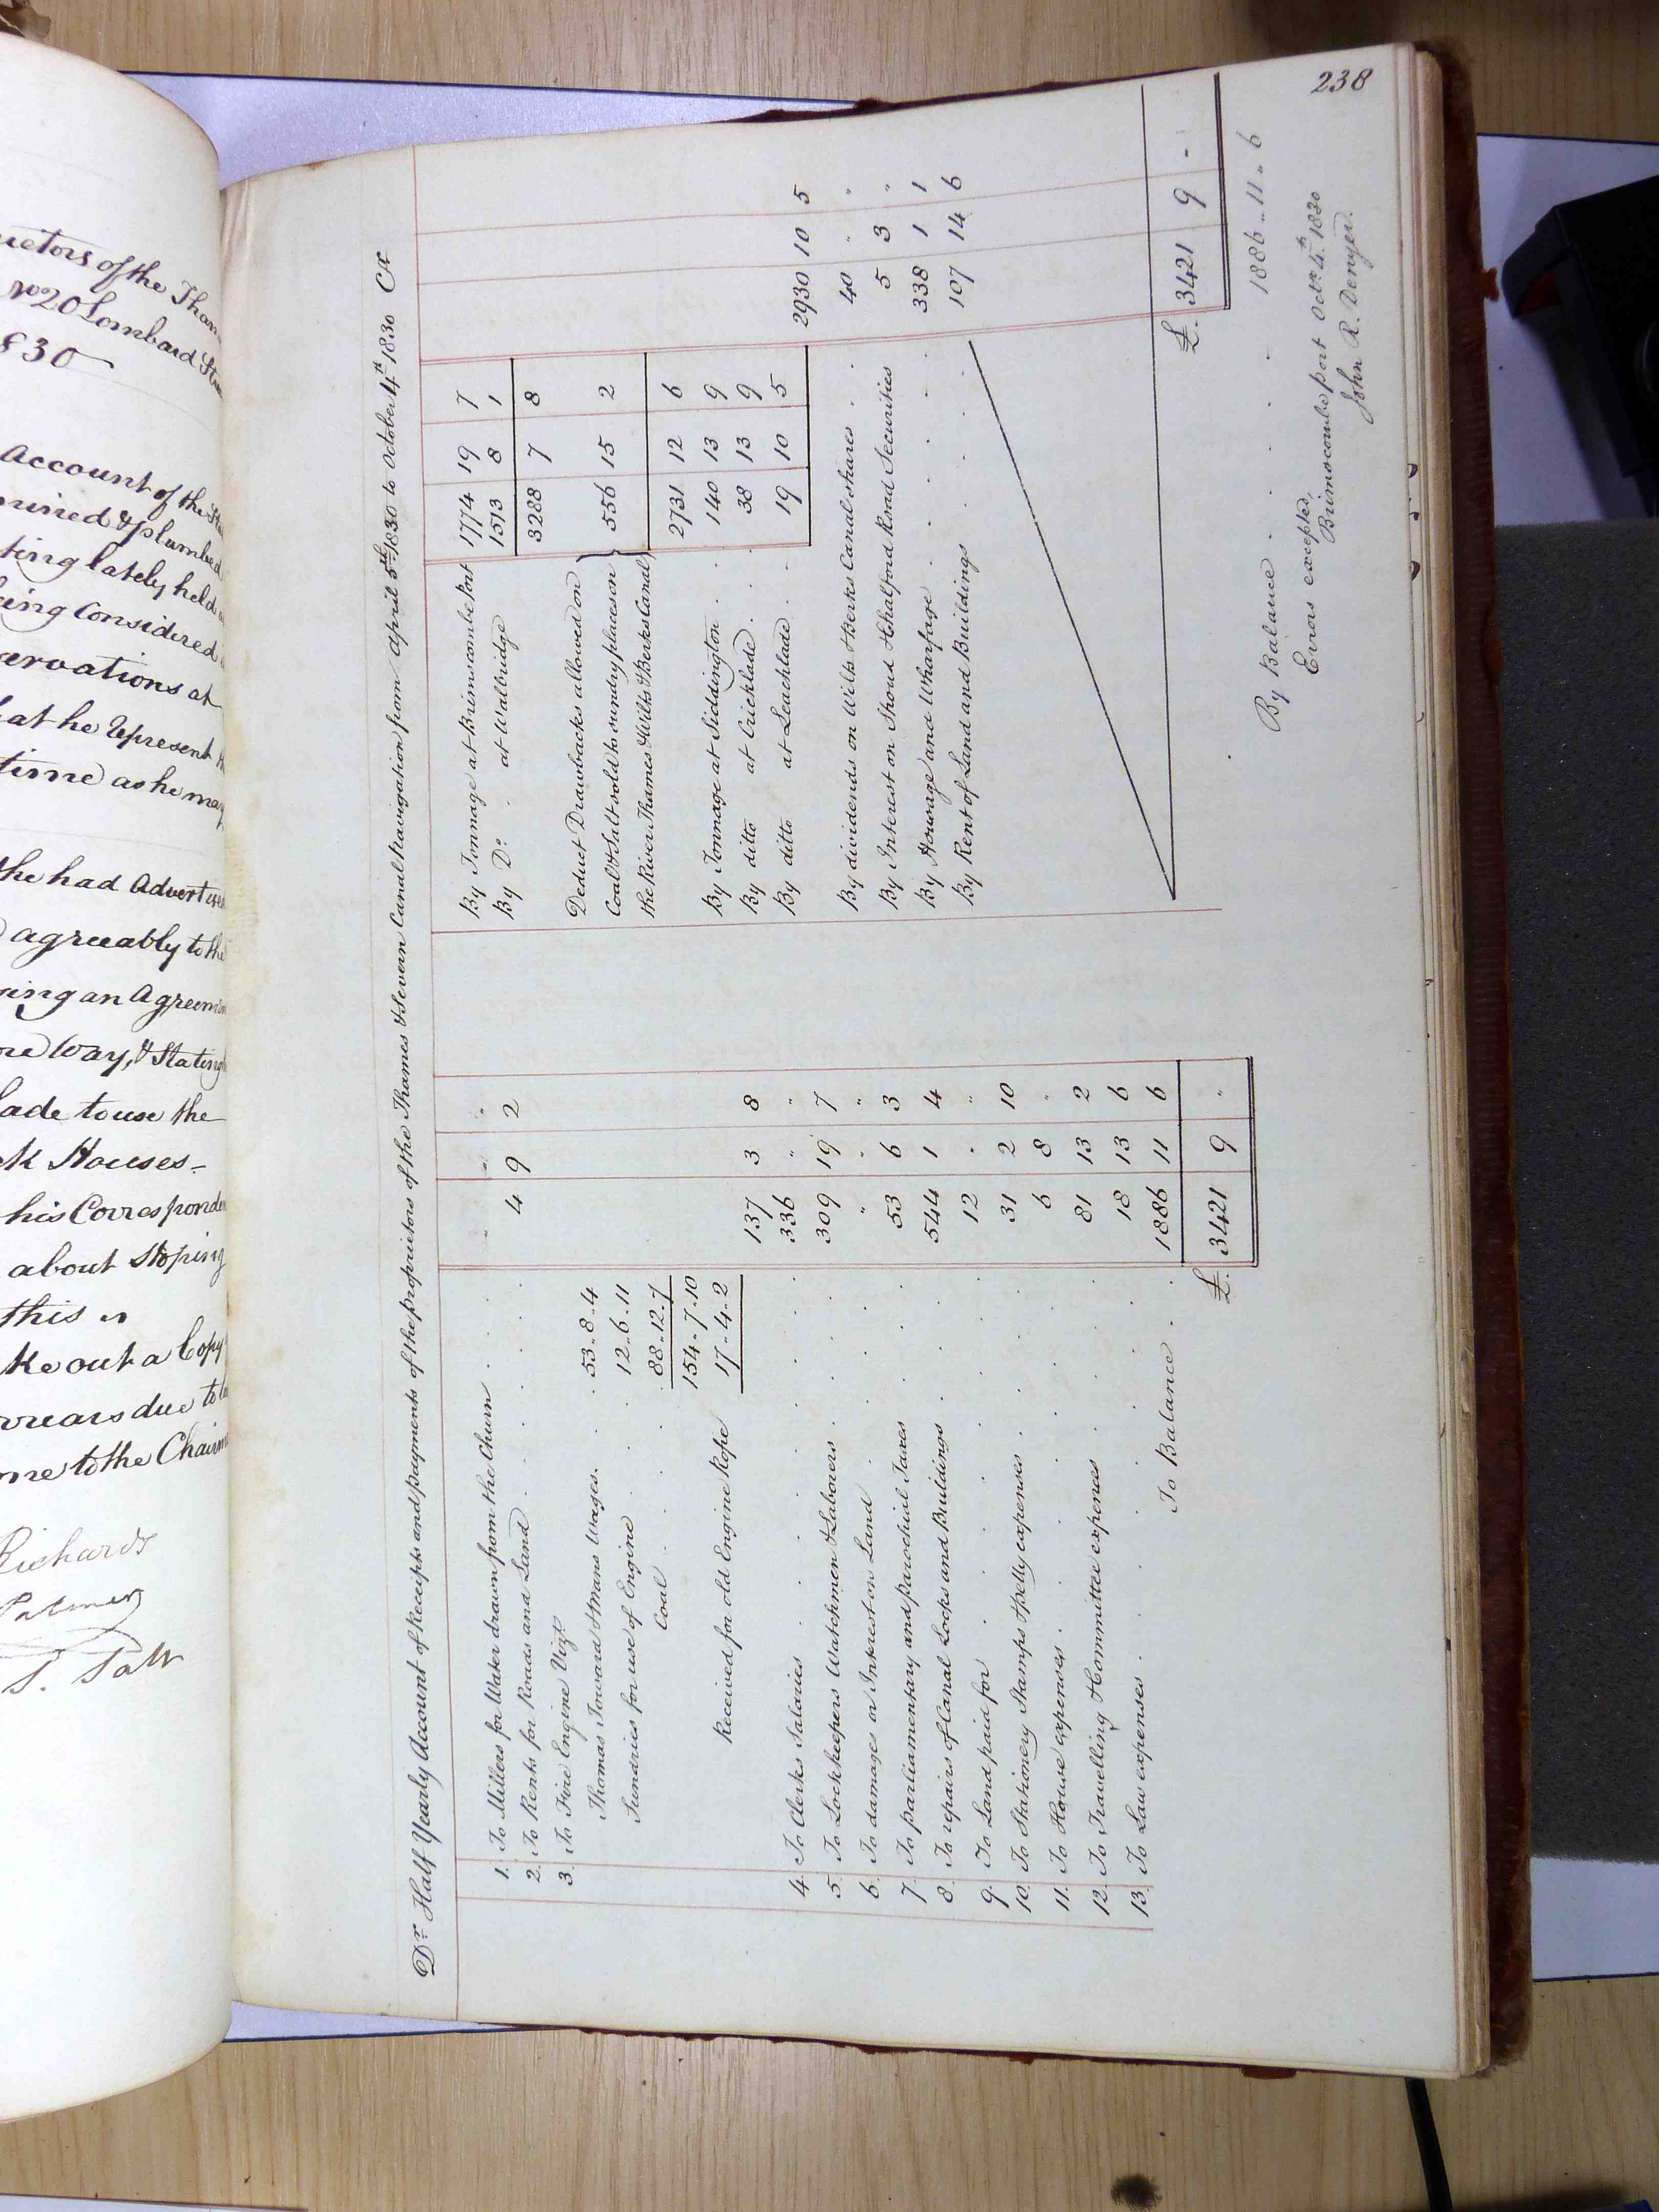 rietors of the Tham
No 20 Lombard Stre
830
Account of the
mined & plumbed
ting lately held
eing Considered
ervations at
at he Represent th
time as he may
he had Advertised
agreeably to the
ing an Agreem
re Way, & Stating
lade to use the
ck Houses -
his Correspond
about Stoping
this
ke out a Copy
rrears due to
me to the Chairm
Richards
Palmer
S. Salt
238
Dr. Half Yearly Account of Receipts and payments of the proprietors of the Thames & Severn Canal Navigation from April 5th 1830 to October 4th 1830 Cr
1. To Millers for Water drawn from the Churn . . . " " "
2. To Rents for Roads and Land . . . 4 9 2
3. To Fire Engine Vizt
Thomas Toward & Mans Wages. . . 53 .. 8 .. 4
Sundries for use of Engine . . 12 .. 6 .. 11
Coal . . . 88 .. 12 .. 7
154 .. 7 .. 10
Received for old Engine Rope 17 .. 4 .. 2
137 3 8
4. To Clerks Salaries . . . 336 " "
5. To Lockkeepers Watchmen & Labourers . . 309 19 7
6. To damages or Interest on Land . . " " "
7. To parliamentary and parochial Taxes . . 53 6 3
8. To repairs of Canal Locks and Buildings . . 544 1 4
9. To Land paid for . . . 12 " "
10. To Stationery Stamps & petty expenses . . 31 2 10
11. To House expenses . . . 6 8 "
12. To Travelling & Committee expences . . 81 13 2
13. To Law expenses . . . 18 13 6
To Balance . . 1886 11 6
£. 3421 9 "
By Tonnage at Brimscombe Port 1774 19 7
By Do. . at Walbridge 1513 8 1
3288 7 8
Deduct Drawbacks allowed on
Coal & Salt sold to sundry places on
the River Thames & Wilts & Berks Canal
556 15 2
2731 12 6
By Tonnage at Siddington . . 140 13 9
By ditto at Cricklade . . 38 13 9
By ditto at Leachlade . . 19 10 5
2930 10 5
By dividends on Wilts & Berks Canal shares . . 40 " "
By Interest on Stroud & Chalford Road Securities 5 3 "
By Housage and Wharfage . . . 338 1 1
By Rent of Land and Buildings . . . 107 14 6
£. 3421 9 -
By Balance . . . 1886 .. 11 .. 6
Errors excepted,
Brimscombe port Octr. 4th 1830
John R. Denyer.